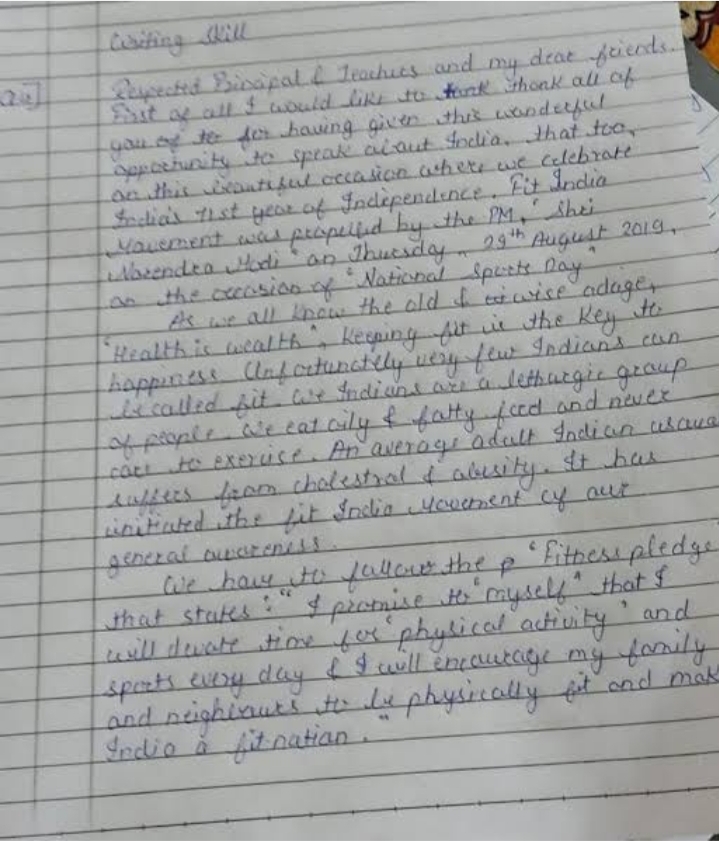 Writing Skill
Respected Principal & Teachers and my dear friends.
First of all I would like to thank all of
you for having given this wonderful
opportunity to speak about India, that too,
on this beautiful occasion where we celebrate
India's 71st year of Independence. Fit India
Movement was propelled by the PM, "Shri
Narendra Modi" on Thursday, 29th August 2019,
on the occasion of "National Sports Day"
As we all know the old & wise adage,
"Health is wealth", Keeping fit is the Key to
happiness Unfortunately very few Indians can
be called fit. We Indians are a lethargic group
of people. We eat oily & fatty food and never
care to exercise. An average adult Indian usua
suffers from cholestral & obusity. It has
initiated the fit India Movement of our
general awareness.
We have to follow the p "Fitness pledge
that states : " I promise to "myself" that I
will devate time for "physical activity" and
sports every day & I will encourage my family
and neighbours to be physically fit and mak
India a fit nation. "